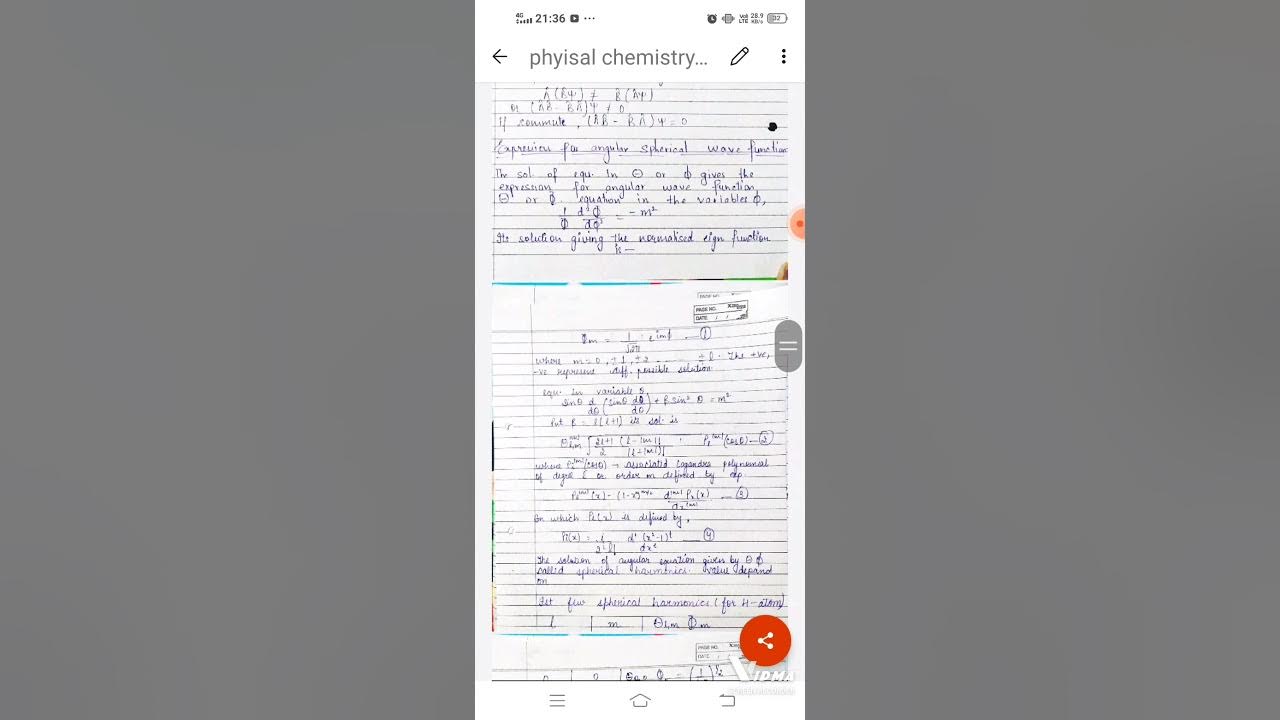 4G 21:36 ... Vol LTE 28.9 KB/s 32
phyisal chemistry...
Â (B̂Ψ) ≠ B̂ (ÂΨ)
or (ÂB̂ - B̂Â) Ψ ≠ 0
If commute, (ÂB̂ - B̂Â) Ψ = 0
Expression for angular Spherical wave function
The sol. of equ. in Θ or ϕ gives the
expression for angular wave function
Θ or Φ. equation in the variables ϕ,
1/Φ d²Φ/dϕ² = -m²
Its solution giving the normalised eign function
is —
PAGE NO.
DATE / /
Φm = 1/√2π e^imϕ — ①
where m = 0, ±1, ±2 - - - - ± l. The +ve,
-ve represent diff. possible solution.
equ. in variable θ,
sinθ d/dθ (sinθ dΘ/dθ) + β sin² θ = m²
Put β = l(l+1) is sol. is
Θ l,m √ 2l+1/2 (l-|m|)!/(l+|m|)! · Pl^|m| (cosθ) — ②
where Pl^|m| (cosθ) → associated legendre polynomial
of degree l or order m defined by exp.
Pl^|m| (x) = (1-x²)^m/2 d^|m| Pl(x)/dx^|m| — ③
for which Pl(x) is defined by,
Pl(x) = 1/2^l l! d^l (x²-1)^l/dx^l — ④
The solution of angular equation given by Θ Φ
called spherical harmonics. value depand
on
Ist few spherical harmonics (for H-atom)
l m Θl,m Φm
PAGE NO.
DATE
0 0 Θ0,0 Φ0 = (1/
VIDMA
SCREEN RECORDER